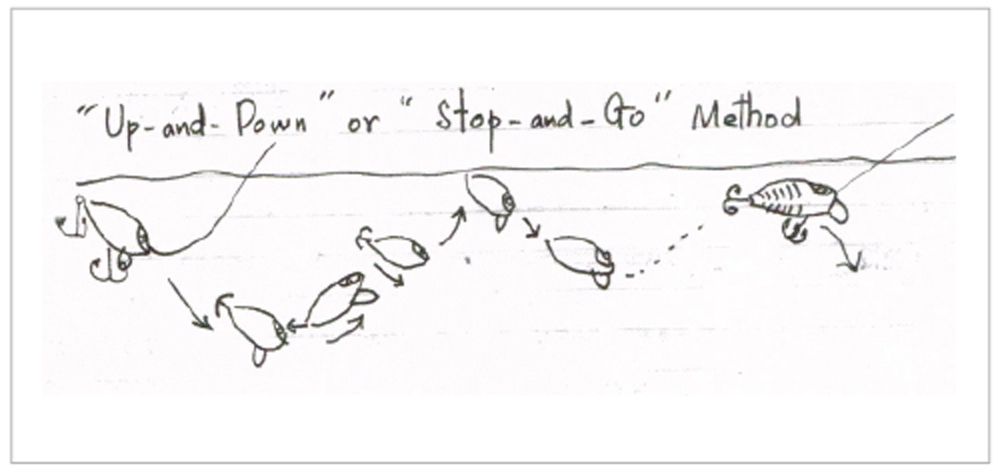 "Up-and-Down" or "Stop-and-Go" Method